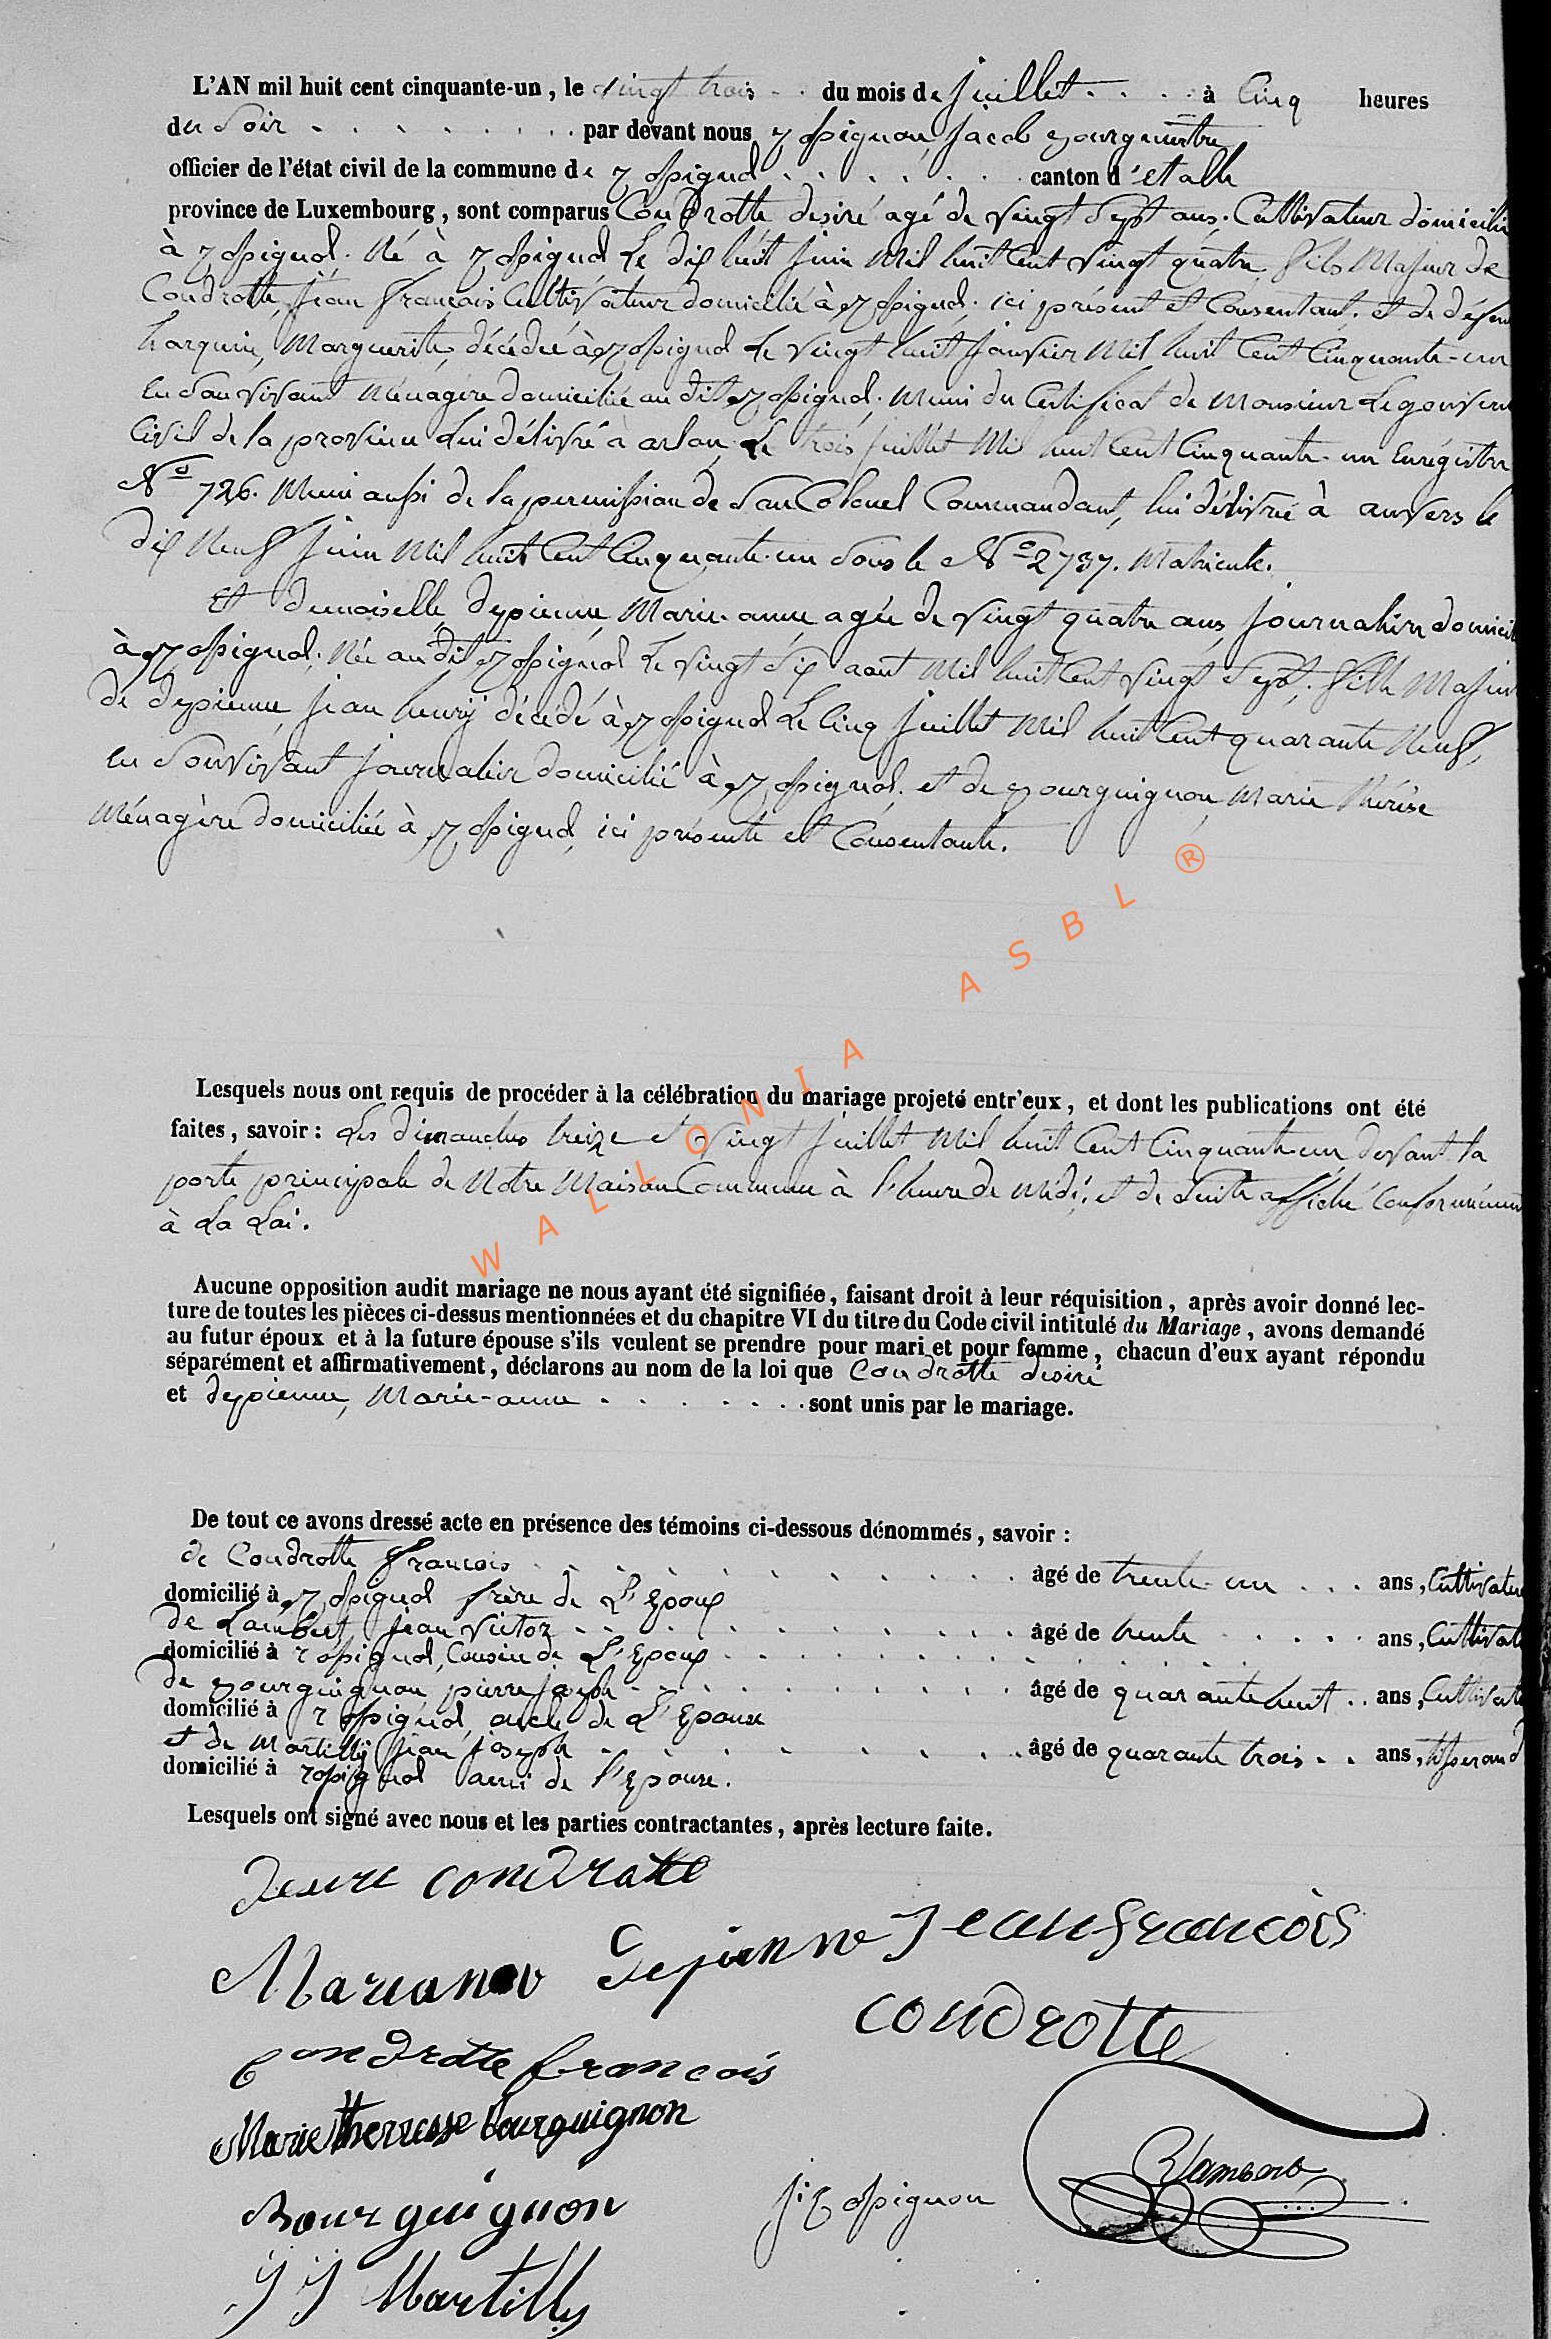 L'AN mil huit cent cinquante-un, le vingt trois . . du mois de juillet . . . . à Cinq heures
du Soir . . . . . . . . . par devant nous Rossignon, Jacob Bourguemestre
officier de l'état civil de la commune de Rossignol . . . . . . . canton d'etalle
province de Luxembourg, sont comparus Condrotte desiré agé de vingt Sept ans. Cultivateur domicilié
à Rossignol. Né à Rossignol Le dix huit juin Mil huit Cent vingt quatre fils Majeur de
Condrotte, Jean françois Cultivateur domicilié à Rossignol. ici présent et Consentant. et de défun
harquin, Marguerite, décédée à Rossignol Le vingt huit janvier Mil huit Cent Cinquante-un
En Son vivant Ménagère domiciliée au dit Rossignol. Muni du Certificat de Monsieur Le gouvern
Civil de la province Lui délivré à arlon Le trois juillet Mil huit Cent Cinquante-un Enrégistré
No 726. Muni aussi de la permission de Son Colonel Commandant, lui délivrée à anvers le
dix Neuf Juin Mil huit Cent Cinquante-un Sous le No 2737. Matricule.
Et demoiselle depienne, Marie-anne agée de vingt quatre ans, journalière domicil
à Rossignol. Née au dit Rossignol Le vingt Six aout Mil huit Cent vingt Sept. fille Majeur
de depienne, jean henrÿ décédé à Rossignol Le Cinq juillet Mil huit Cent quarante Neuf,
En Son vivant journalier domicilié à Rossignol. et de Bourguignon Marie thérèse
Ménagère domiciliée à Rossignol, ici présente et Consentante.
WALLONIA ASBL ®
Lesquels nous ont requis de procéder à la célébration du mariage projeté entr'eux, et dont les publications ont été
faites, savoir: Les dimanches treize et vingt juillet Mil huit Cent Cinquante-un devant la
porte principale de Notre Maison Commune à l'heure de Midi. et de Suite affiché Conformément
à La Loi.
Aucune opposition audit mariage ne nous ayant été signifiée, faisant droit à leur réquisition, après avoir donné lec-
ture de toutes les pièces ci-dessus mentionnées et du chapitre VI du titre du Code civil intitulé du Mariage, avons demandé
au futur époux et à la future épouse s'ils veulent se prendre pour mari et pour femme, chacun d'eux ayant répondu
séparément et affirmativement, déclarons au nom de la loi que Condrotte desiré
et depienne, Marie-anne . . . . . . . . sont unis par le mariage.
De tout ce avons dressé acte en présence des témoins ci-dessous dénommés, savoir :
de Condrotte françois . . . . . . . . . . âgé de trente-un . . . ans, Cultivateu
domicilié à Rossignol frère de L'Epoux
de Lambert, jean Victor . . . . . . . . . . âgé de trente . . . . . ans, Cultivat
domicilié à Rossignol, Cousin de L'Epoux . . . . . . . . . .
de Bourguignon, pierre joseph . . . . . . . . . âgé de quarante huit . . ans, Cultivat
domicilié à Rossignol, oncle de L'Epouse
et de Martillÿ jean joseph . . . . . . . . . âgé de quarante trois . . ans, tisserand
domicilié à rossignol ami de l'Epouse.
Lesquels ont signé avec nous et les parties contractantes, après lecture faite.
Desire condrotte
Marianne Depienne Jean françois
condrotte
Condrotte françois
Marie therresse bourguignon
Bourguignon
J Rossignon
Lambert
J J Martilly